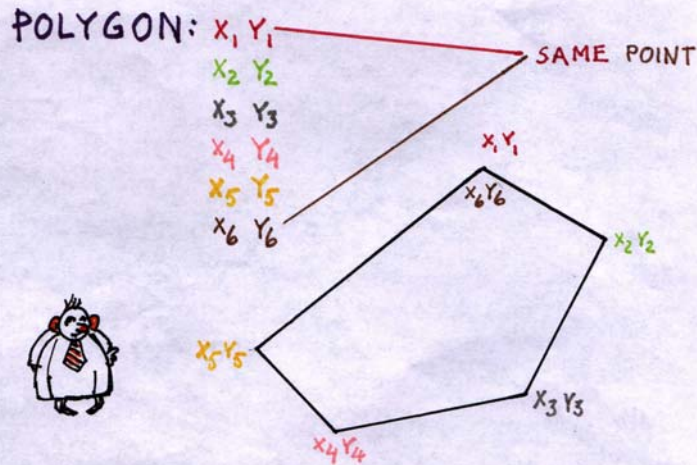 POLYGON: X₁ Y₁
X₂ Y₂
X₃ Y₃
X₄ Y₄
X₅ Y₅
X₆ Y₆
SAME POINT
X₁ Y₁
X₆ Y₆
X₂ Y₂
X₅ Y₅
X₃ Y₃
X₄ Y₄